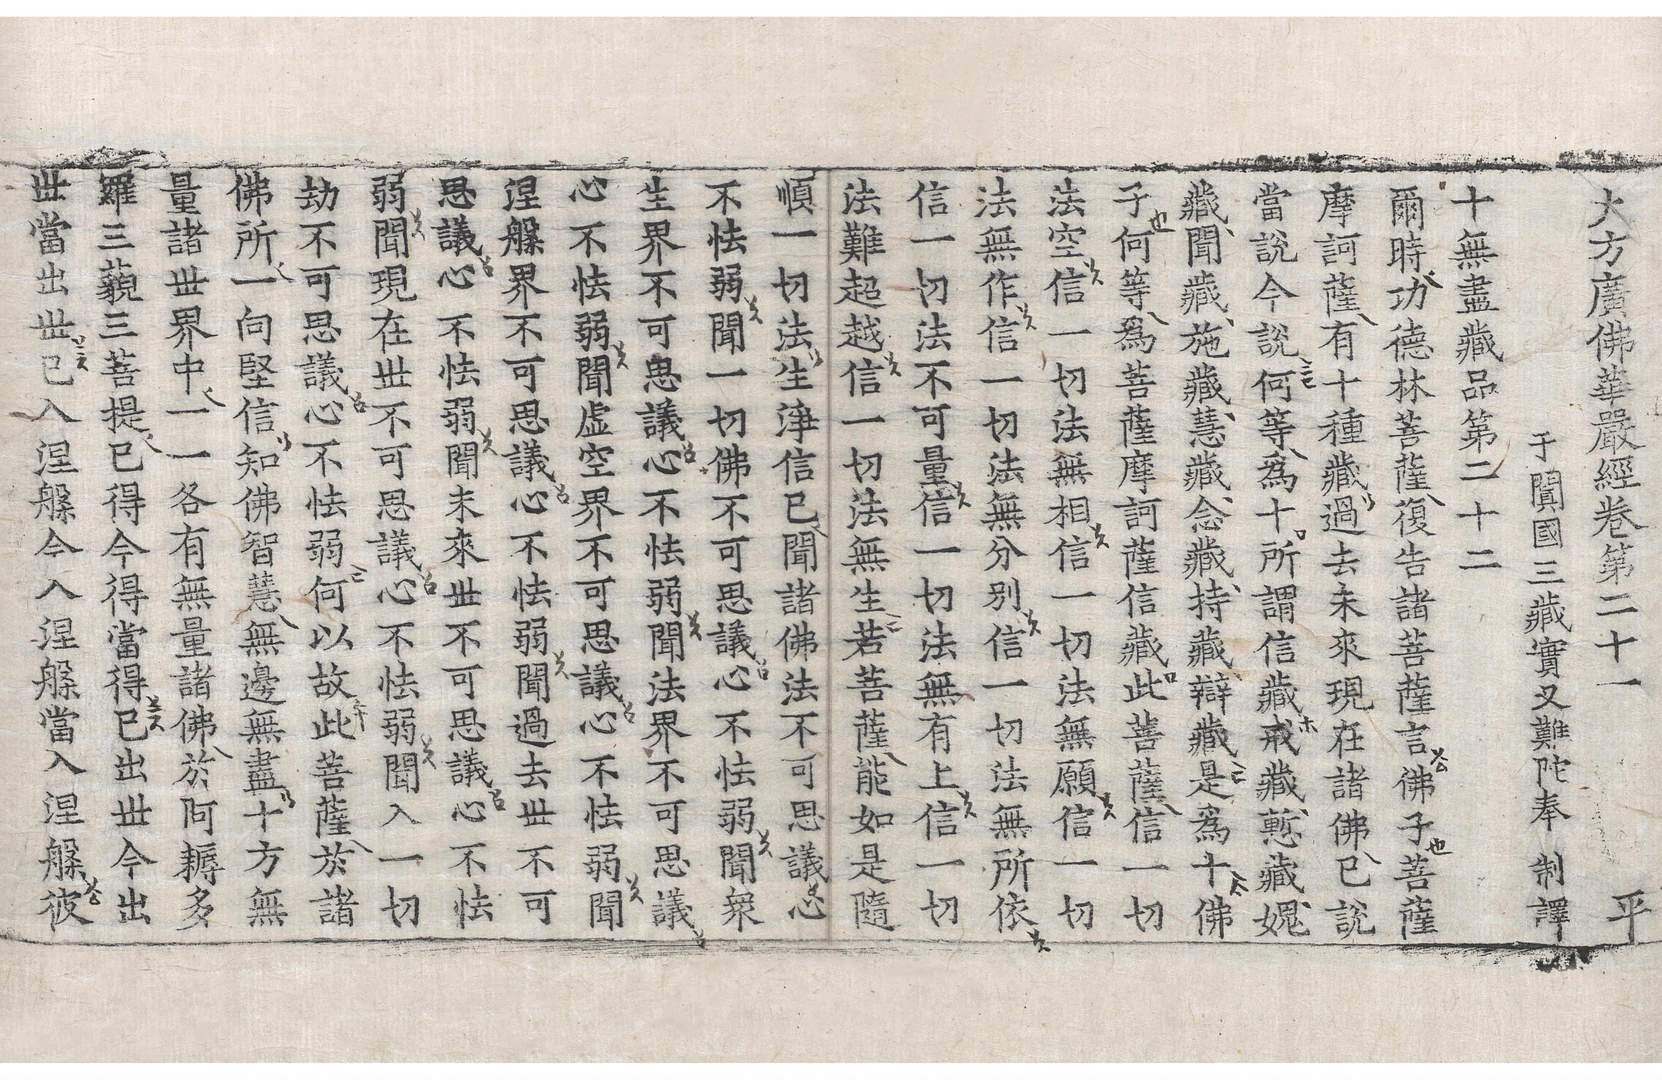 大方廣佛華嚴經卷第二十一 平
于闐國三藏實叉難陀奉 制譯
十無盡藏品第二十二
爾時功德林菩薩復告諸菩薩言佛子菩薩
摩訶薩有十種藏過去未來現在諸佛已說
當說今說何等為十所謂信藏戒藏慙藏媿
藏聞藏施藏慧藏念藏持藏辯藏是為十佛
子何等為菩薩摩訶薩信藏此菩薩信一切
法空信一切法無相信一切法無願信一切
法無作信一切法無分别信一切法無所依
信一切法不可量信一切法無有上信一切
法難超越信一切法無生若菩薩能如是隨
順一切法生淨信已聞諸佛法不可思議心
不怯弱聞一切佛不可思議心不怯弱聞衆
生界不可思議心不怯弱聞法界不可思議
心不怯弱聞虛空界不可思議心不怯弱聞
涅槃界不可思議心不怯弱聞過去世不可
思議心不怯弱聞未來世不可思議心不怯
弱聞現在世不可思議心不怯弱聞入一切
劫不可思議心不怯弱何以故此菩薩於諸
佛所一向堅信知佛智慧無邊無盡十方無
量諸世界中一一各有無量諸佛於阿耨多
羅三藐三菩提已得今得當得已出世今出
世當出世已入涅槃今入涅槃當入涅槃彼